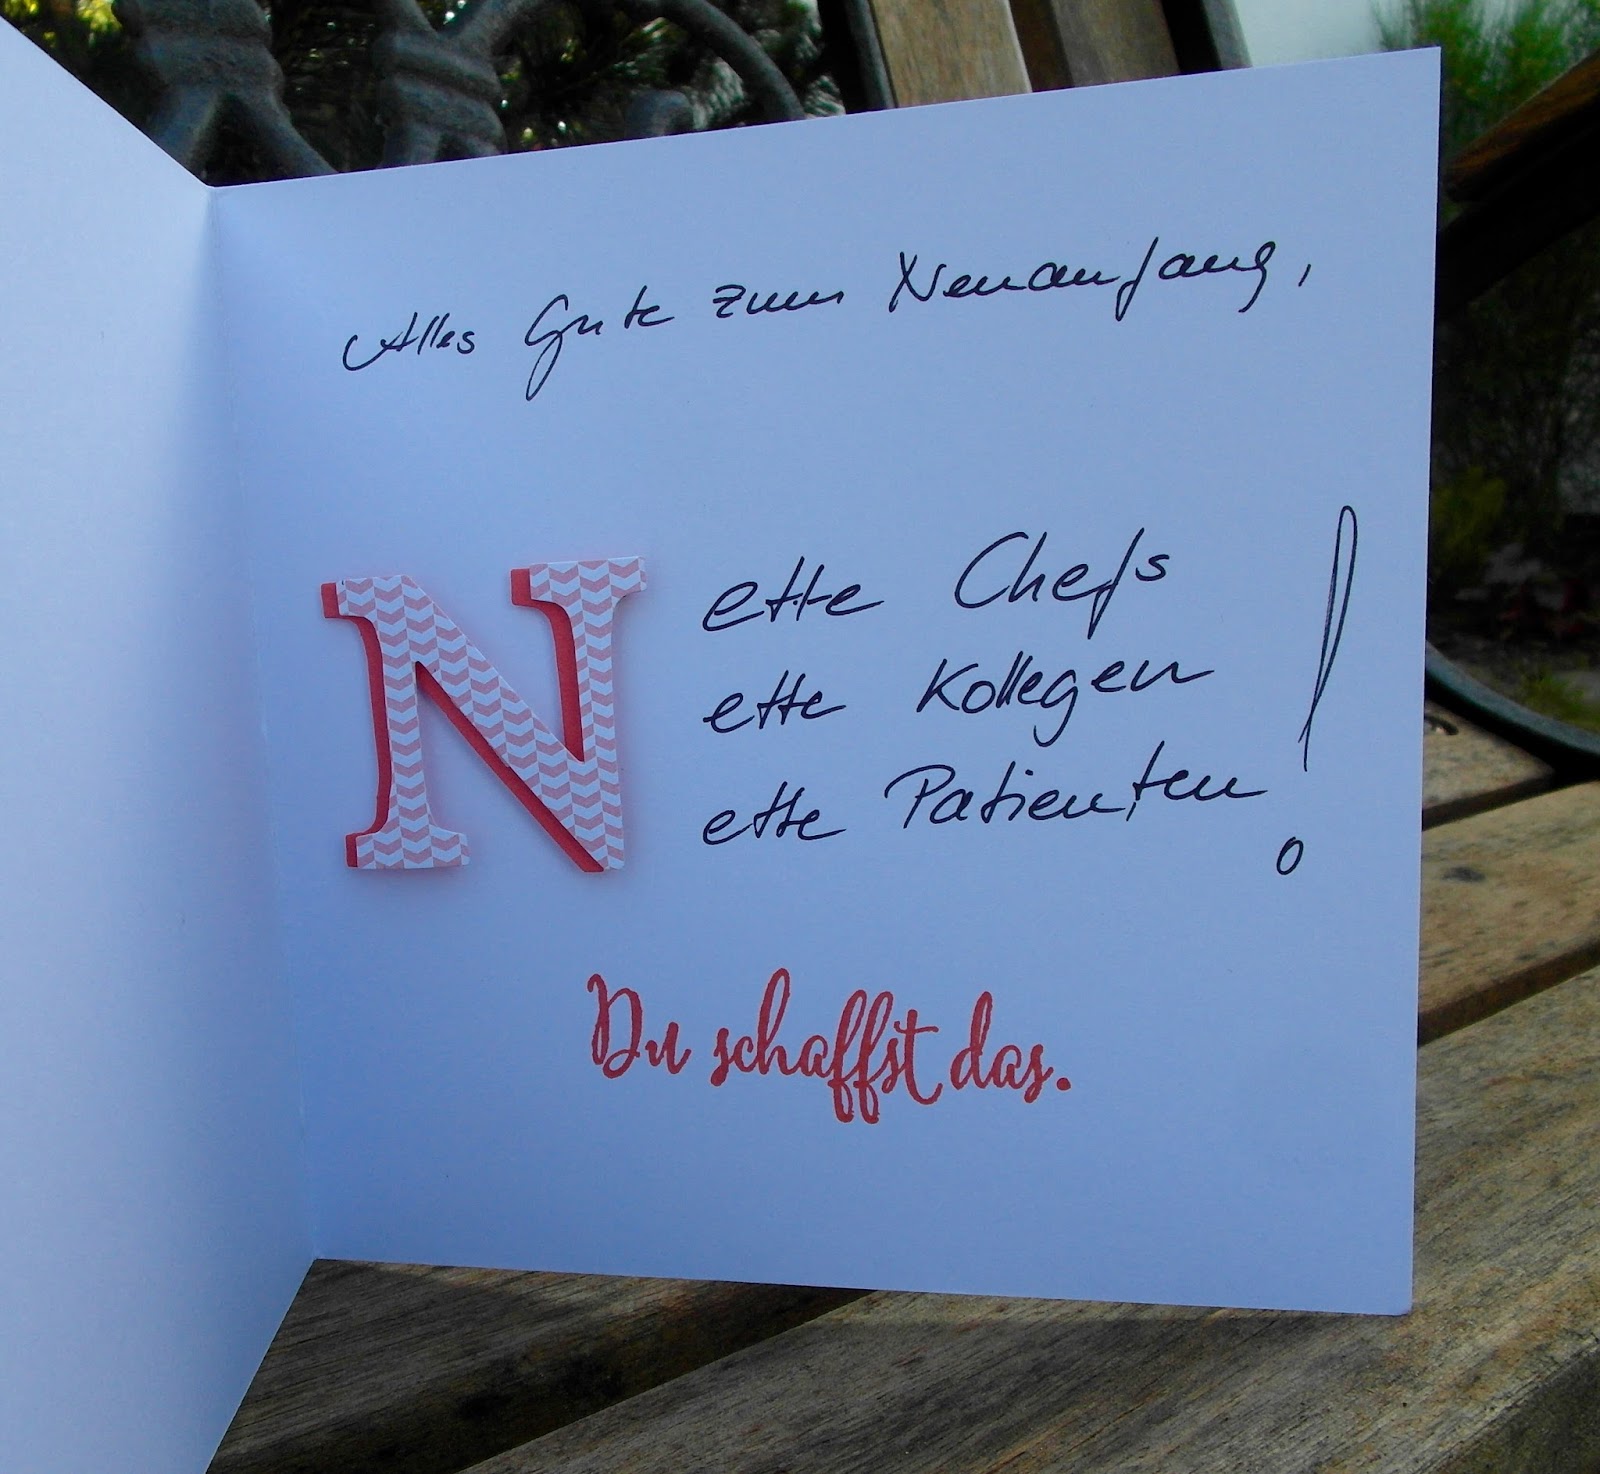 Alles Gute zum Neuanfang,
Nette Chefs
ette Kollegen
ette Patienten!
Du schaffst das.